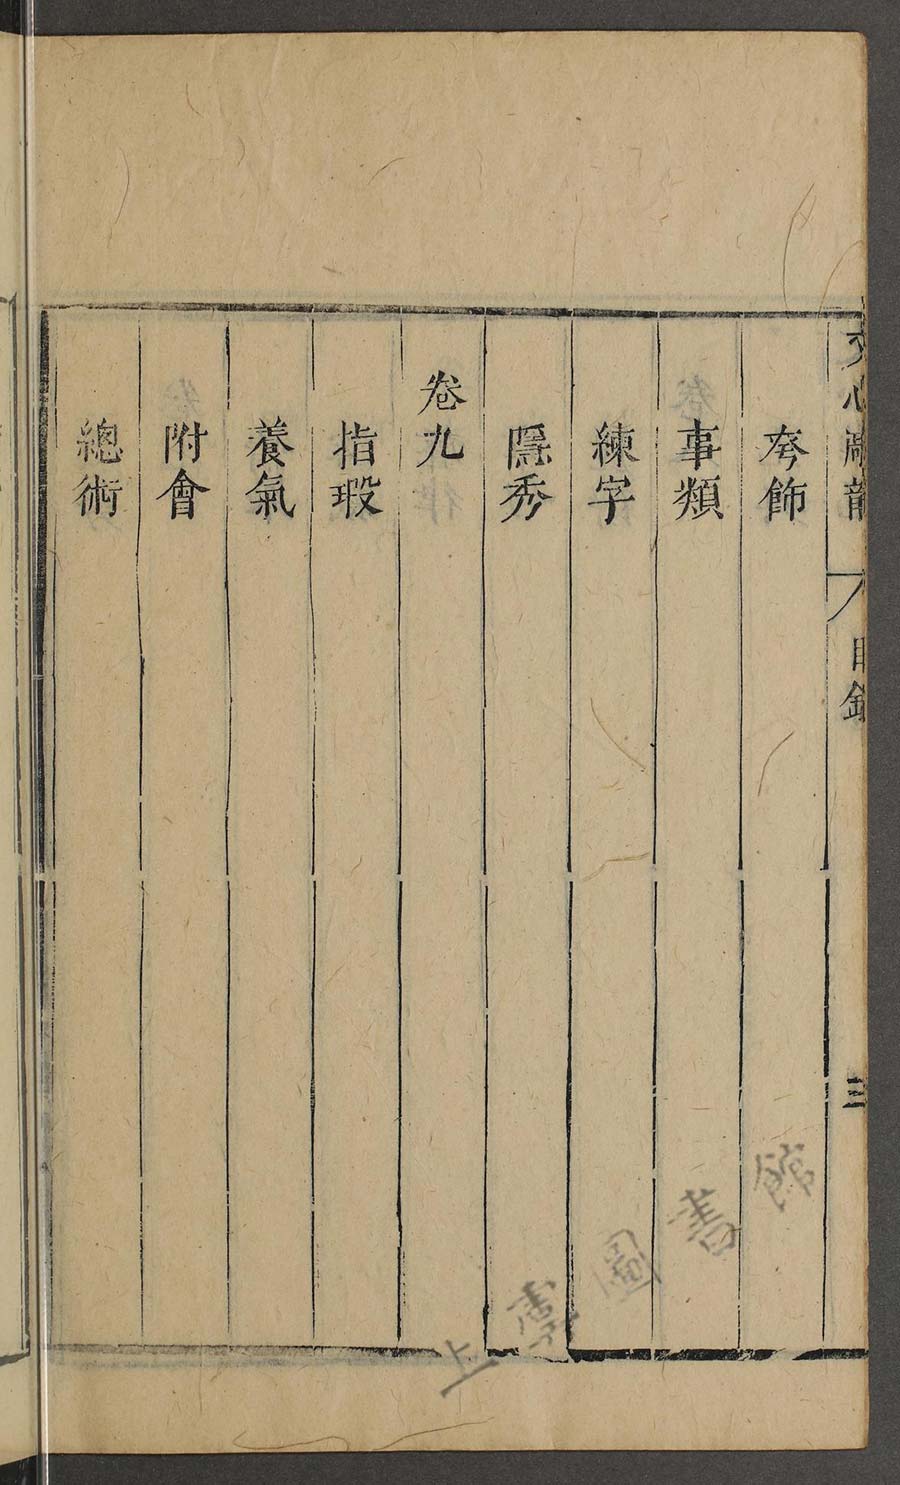 文心雕龍 目錄 三
夸飾
事類
練字
隱秀
卷九
指瑕
養氣
附會
總術
上海圖書館